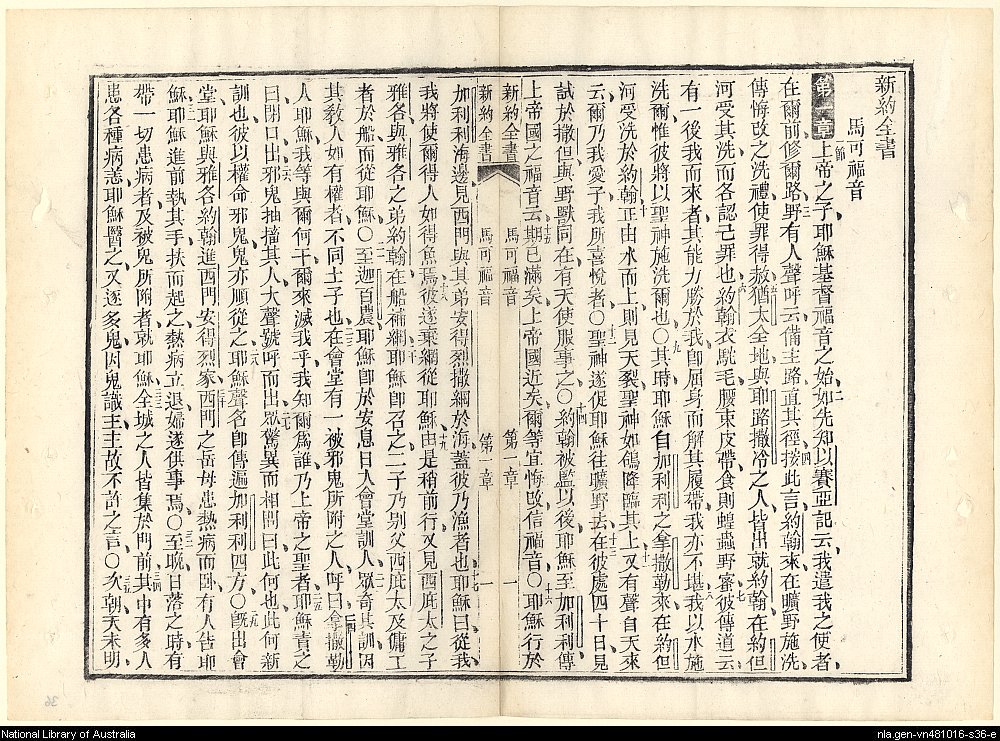 新約全書
馬可福音
第一章 一節上帝之子耶穌基督福音之始二如先知以賽亞記云我遣我之使者
在爾前修爾路三野有人聲呼云備主路直其徑四按此言約翰來在曠野施洗
傳悔改之洗禮使罪得赦五猶太全地與耶路撒冷之人皆出就約翰在約但
河受其洗而各認己罪也六約翰衣駝毛腰束皮帶食則蝗蟲野蜜七彼傳道云
有一後我而來者其能力勝於我卽屈身而解其履帶我亦不堪八我以水施
洗爾惟彼將以聖神施洗爾也〇九其時耶穌自加利利之拿撒勒來在約但
河受洗於約翰十正由水而上則見天裂聖神如鴿降臨其上十一又有聲自天來
云爾乃我愛子我所喜悅者〇十二聖神遂促耶穌往曠野去十三在彼處四十日見
試於撒但與野獸同在有天使服事之〇十四約翰被監以後耶穌至加利利傳
上帝國之福音十五云期已滿矣上帝國近矣爾等宜悔改信福音〇十六耶穌行於
新約全書 馬可福音 第一章 一
新約全書 馬可福音 第一章 一
加利利海邊見西門與其弟安得烈撒網於海蓋彼乃漁者也十七耶穌曰從我
我將使爾得人如得魚焉十八彼遂棄網從耶穌十九由是稍前行又見西庇太之子
雅各與雅各之弟約翰在船補網二十耶穌卽召之二子乃別父西庇太及傭工
者於船而從耶穌〇二一至迦百農耶穌卽於安息日入會堂訓人二二眾奇其訓因
其教人如有權者不同士子也二三在會堂有一被邪鬼所附之人呼曰二四拿撒勒
人耶穌我等與爾何干爾來滅我乎我知爾爲誰乃上帝之聖者二五耶穌責之
曰閉口出二六邪鬼抽搐其人大聲號呼而出二七眾驚異而相問曰此何也此何新
訓也彼以權命邪鬼鬼亦順從之二八耶穌聲名卽傳遍加利利四方〇二九旣出會
堂耶穌與雅各約翰進西門安得烈家三十西門之岳母患熱病而臥有人告耶
穌三一耶穌進前執其手扶而起之熱病立退婦遂供事焉〇三二至晚日落之時有
帶一切患病者及被鬼所附者就耶穌三三全城之人皆集於門前三四其中有多人
患各種病恙耶穌醫之又逐多鬼因鬼識主主故不許之言〇三五次朝天未明
36
National Library of Australia
nla.gen-vn481016-s36-e